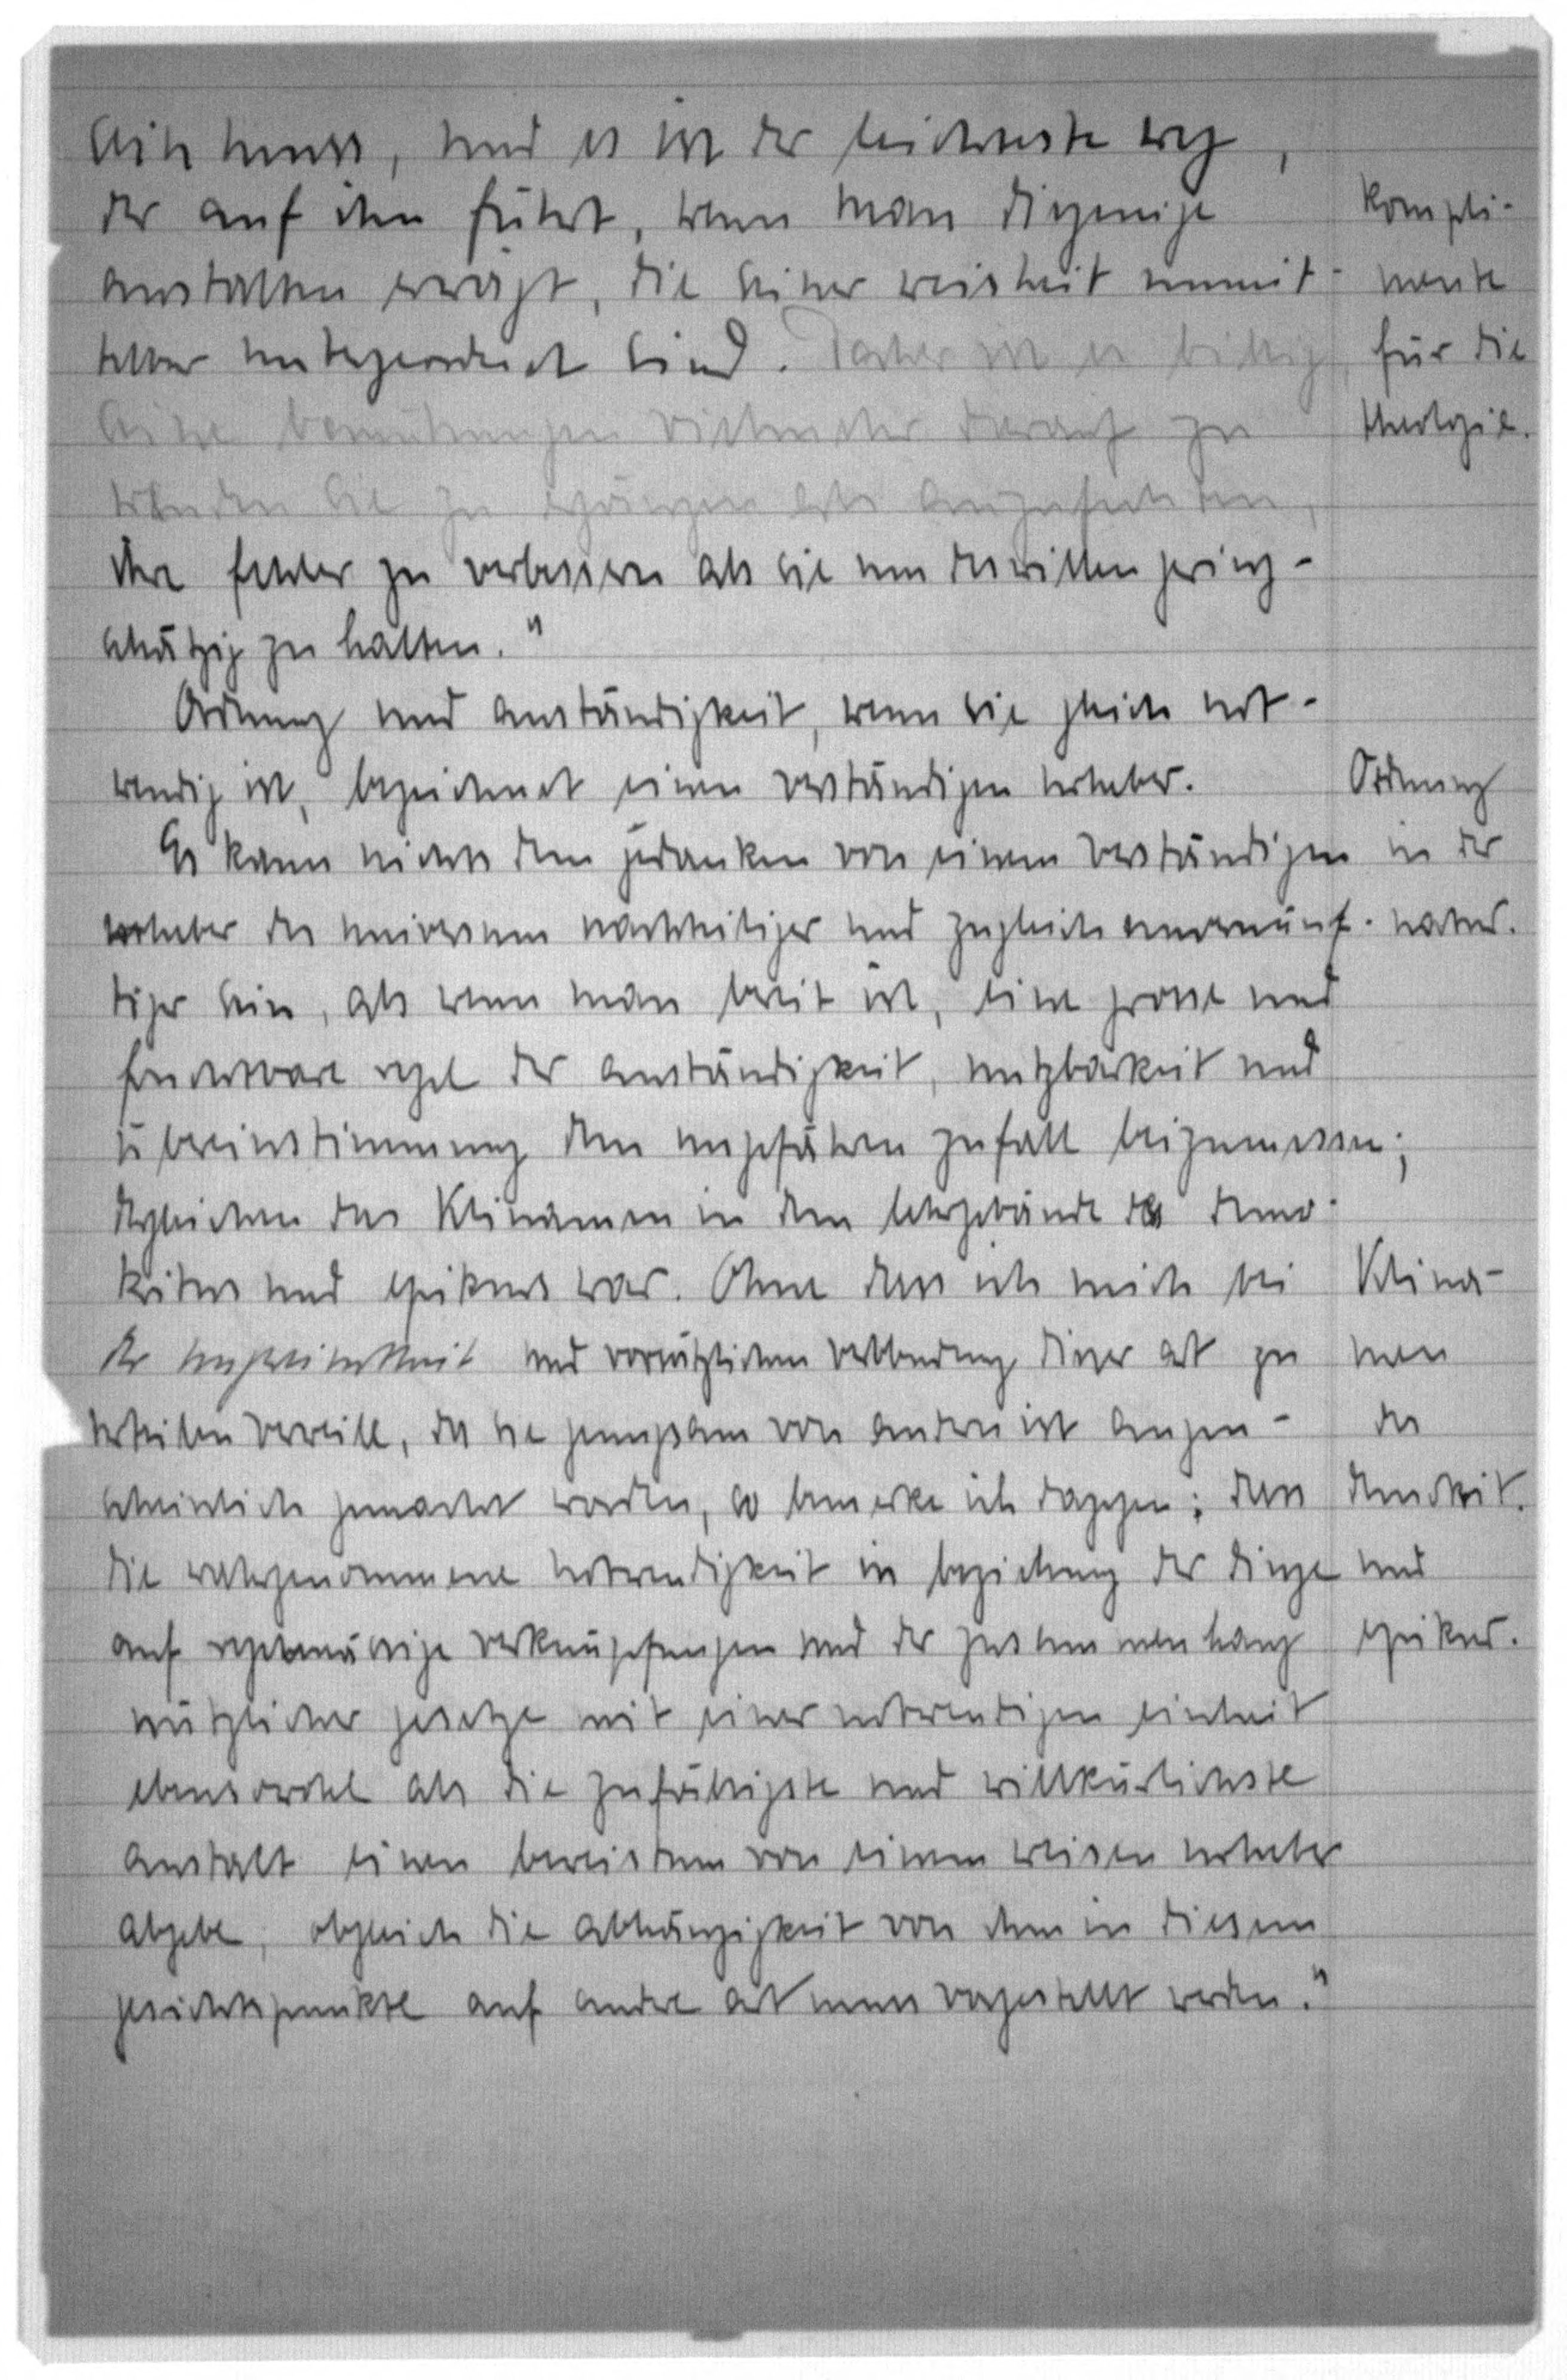 sein muss, und es ist der leichteste weg,
der auf ihn führt, wenn man diejenige
anstalten erwägt, die seiner weisheit unmit-
telbar untergeordnet sind. Daher ist es billig,
seine bemühungen vielmehr darauf zu
wenden sie zu ergänzen als anzufechten,
ihre fehler zu verbessern als sie um deswillen gering-
schätzig zu halten."
Ordnung und anständigkeit, wenn sie gleich not-
wendig ist, bezeichnet einen verständigen urheber.
Es kann nichts dem gedanken von einem verständigen
urheber des universum nachteiliger und zugleich unvernünf-
tiger sein, als wenn man bereit ist, eine grosse und
fruchtbare regel der anständigkeit, nutzbarkeit und
übereinstimmung dem ungefähren zufall beizumessen;
dergleichen das Klinamen in dem lehrgebäude des demo-
kritus und epikurs war. Ohne dass ich mich bei
der ungereimtheit und vorsätzlichen verblendung dieser art zu
urteilen verweile, da sie genugsam von andern ist augen-
scheinlich gemacht worden, so bemerke ich dagegen: dass
die wahrgenommene notwendigkeit in beziehung der dinge
auf regelmässige verknüpfungen und der zusammenhang
nützlicher gesetze mit einer notwendigen einheit
ebensowohl als die zufälligste und willkürlichste
anstalt einen beweistum von einem weisen urheber
abgebe; obgleich die abhängigkeit von ihm in diesem
gesichtspunkte auf andre art muss vorgestellt werden."
Kompli-
mente
für die
theologie.
Ordnung
in der
natur.
Klina-
men
des
demokrit.
und
epikur.